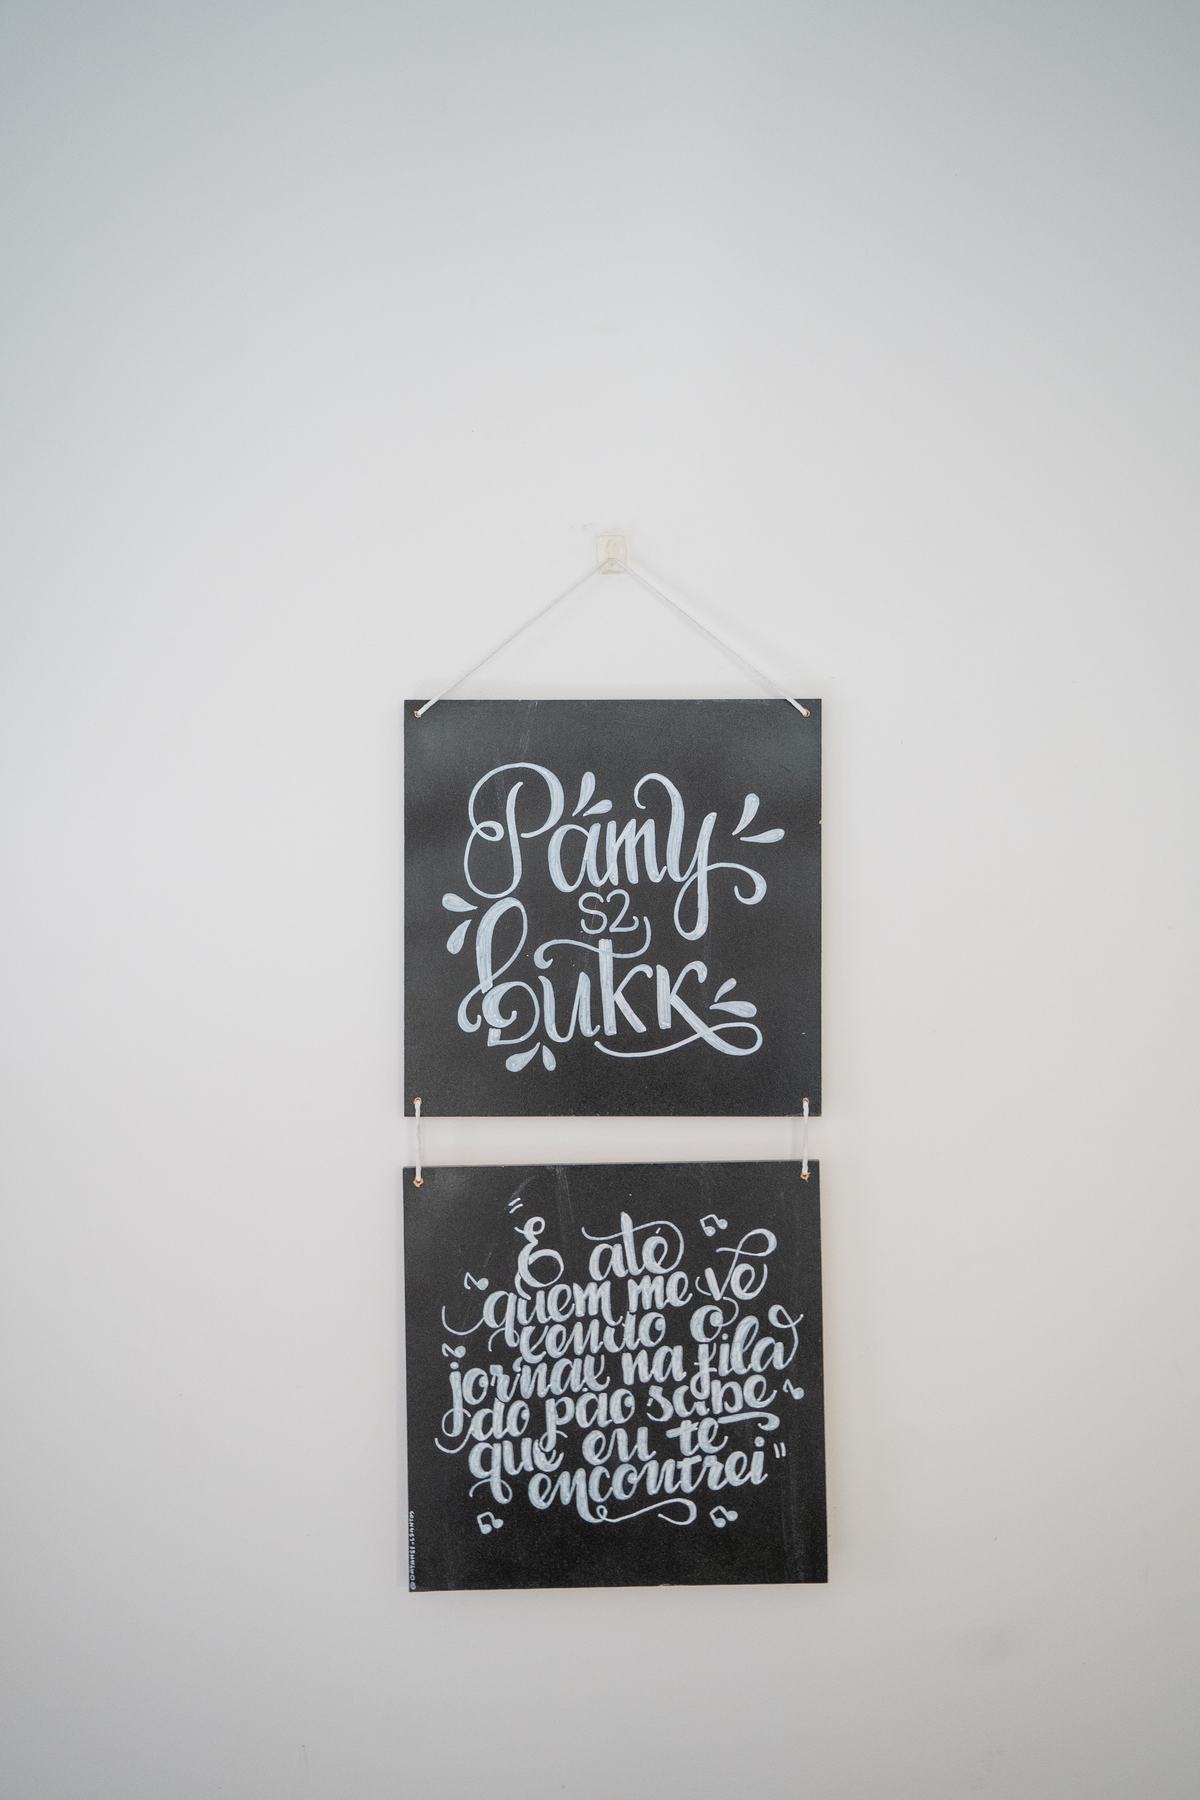 Pamy
S2
bukk
"E até
quem me vê
lendo o
jornal na fila
do pão sabe
que eu te
encontrei"
@DAYANE1.LSANTOS